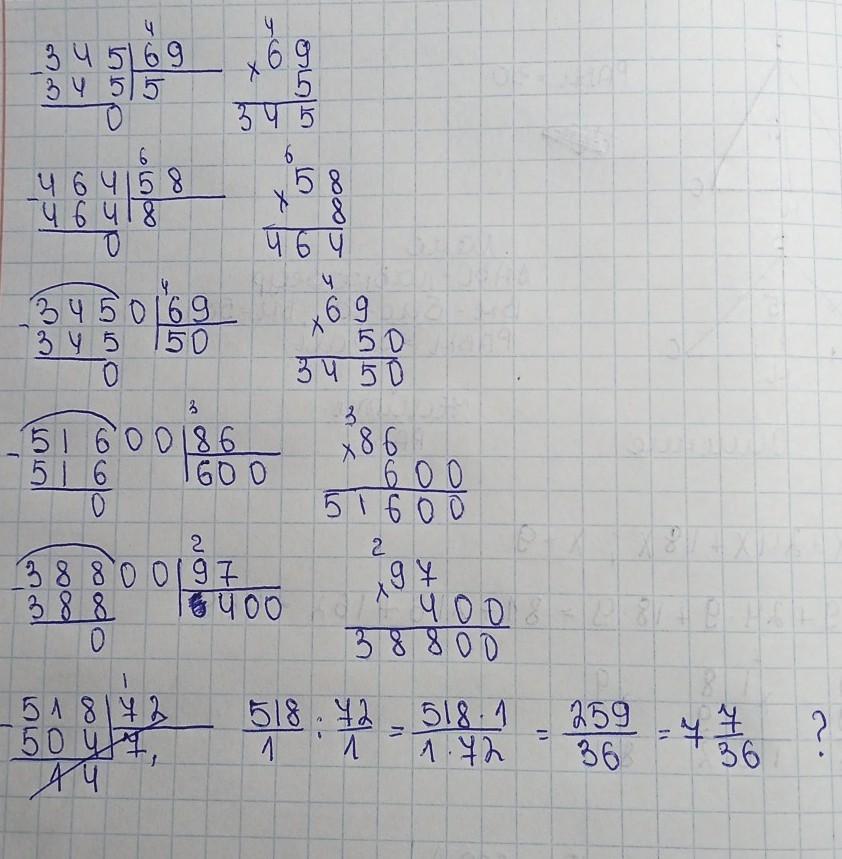 4 4
-345|69 ×69
345|5 5
0 345
6 6
-464|58 ×58
464|8 8
0 464
4 4
-3450|69 ×69
345 |50 50
0 3450
3 3
-51600|86 ×86
516 |600 600
0 51600
2 2
-38800|97 ×97
388 |400 400
0 38800
1
-518|72 518/1 : 72/1 = 518·1/1·72 = 259/36 = 7 7/36 ?
504|7,
14